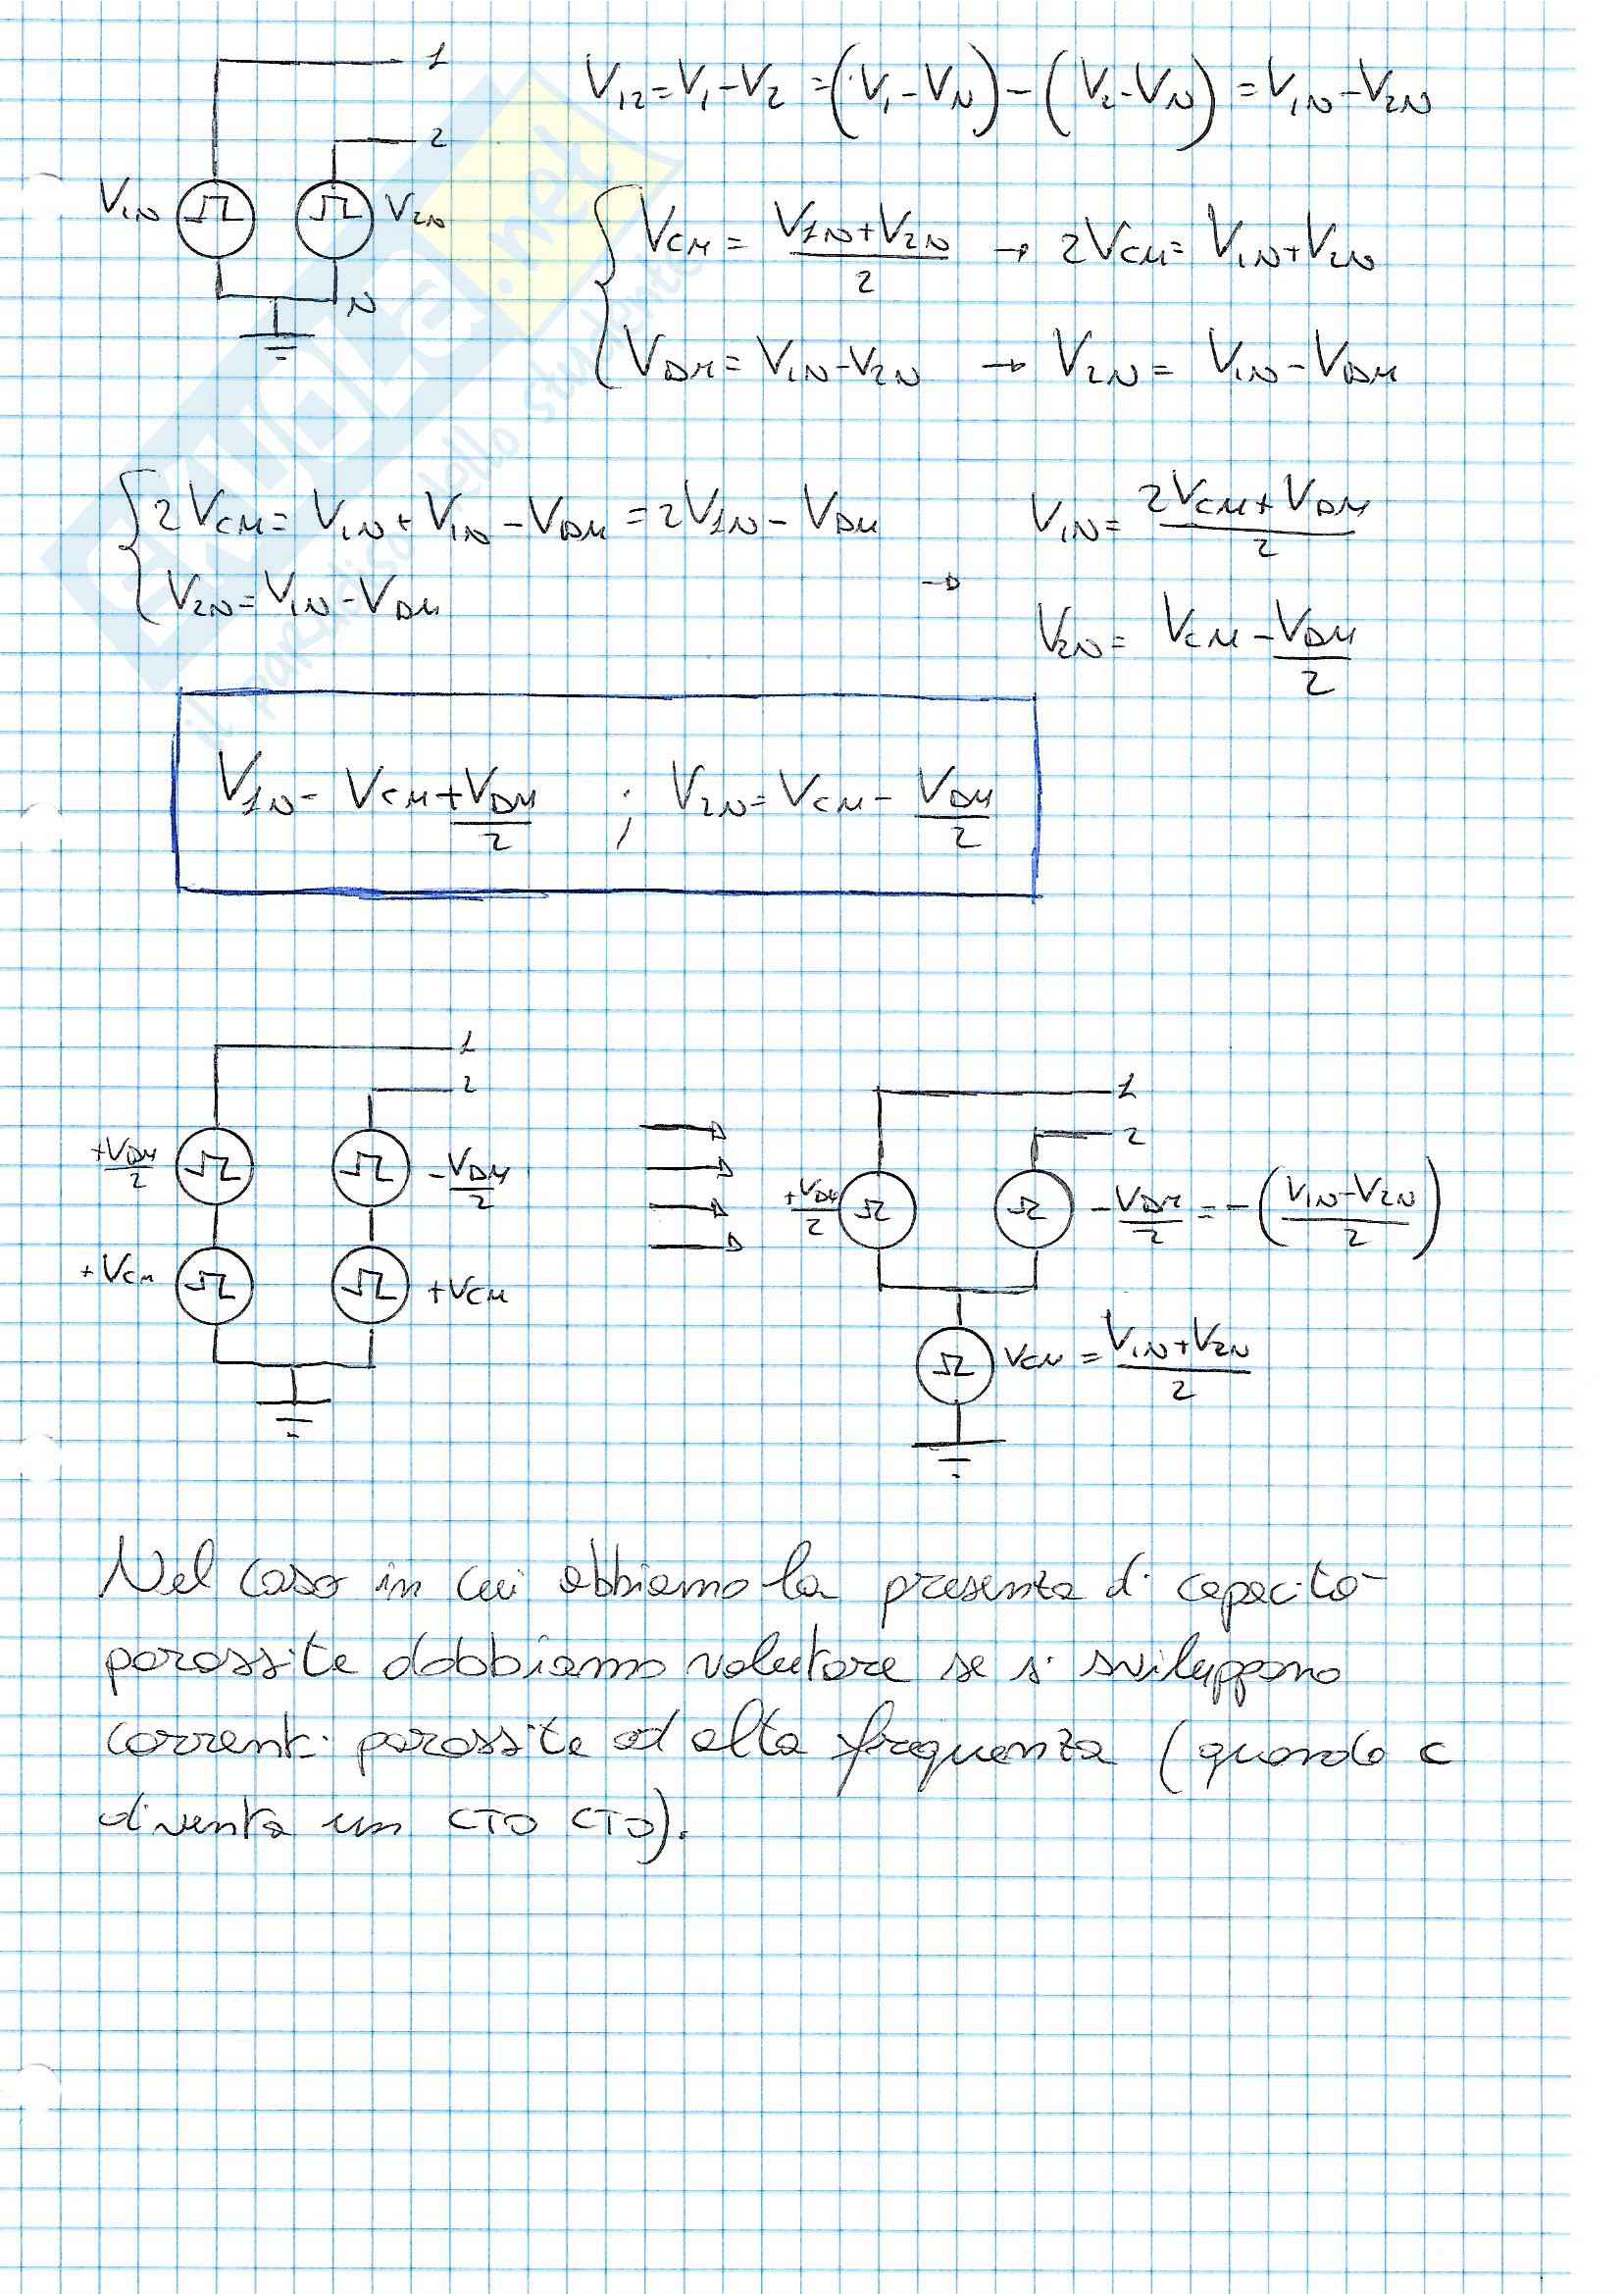 1
V12 = V1 - V2 = (V1 - VN) - (V2 - VN) = V1N - V2N
2
V1N
V2N
N
VCM = (V1N + V2N)/2 → 2VCM = V1N + V2N
VDM = V1N - V2N → V2N = V1N - VDM
2VCM = V1N + V1N - VDM = 2V1N - VDM
V2N = V1N - VDM
→
V1N = (2VCM + VDM)/2
V2N = VCM - VDM/2
V1N - VCM + VDM/2 ; V2N = VCM - VDM/2
1
2
+VDM/2
-VDM/2
+VCM
+VCM
1
2
+VDM/2
-VDM/2 = -((V1N - V2N)/2)
VCM = (V1N + V2N)/2
Nel caso in cui abbiamo la presenza di capacità
parassite dobbiamo valutare se si sviluppano
correnti parassite ad alta frequenza (quando C
diventa un CTO CTO).
.net
il paradiso dello studente